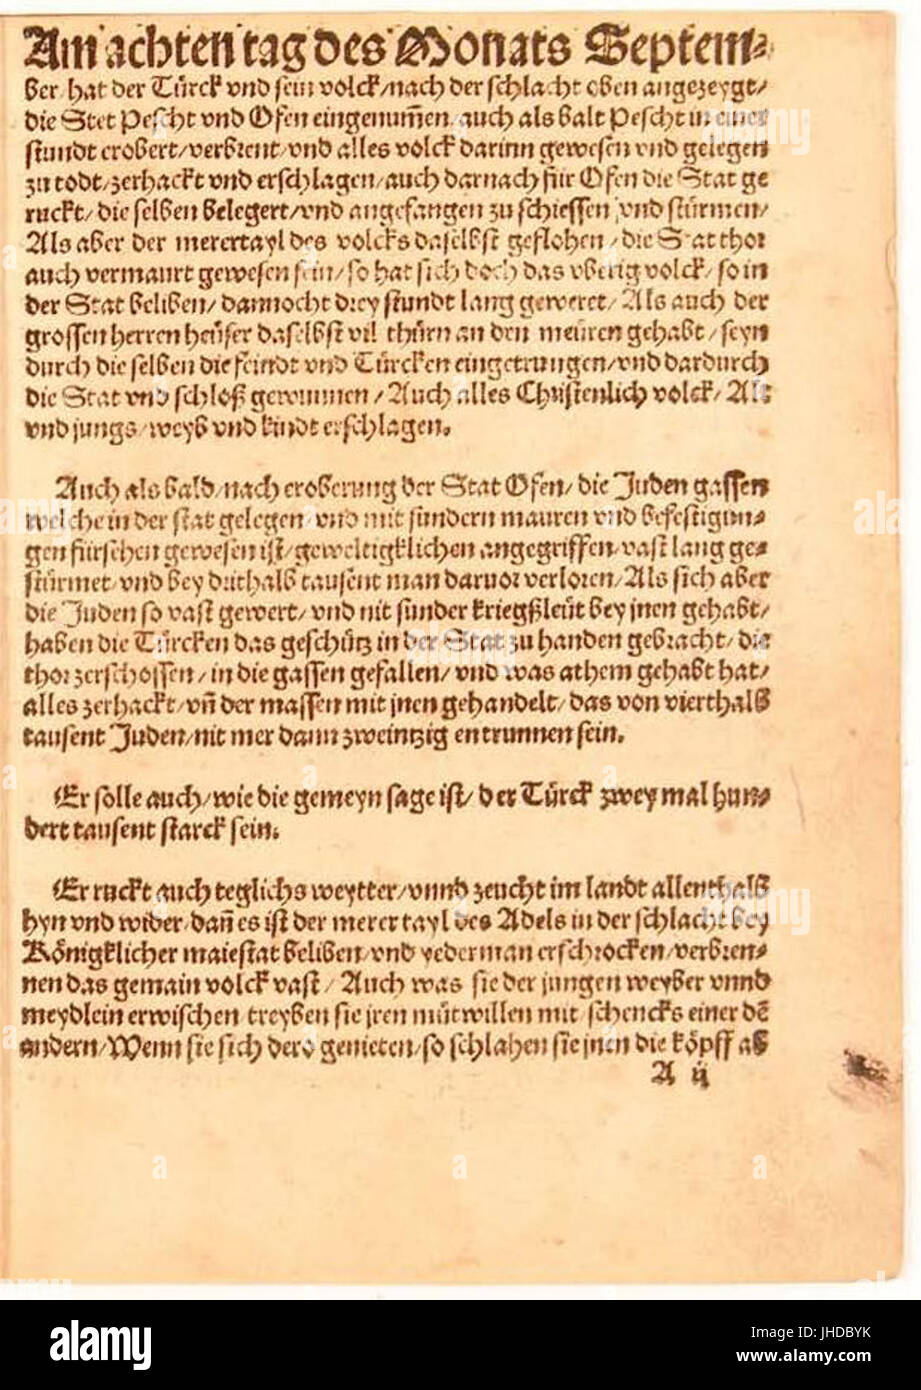 Am achten tag des Monats Septem⸗
ber/ hat der Türck vnd sein volck/ nach der schlacht oben angezeygt/
die Stet Pescht vnd Ofen eingenum̃en/ auch als balt Pescht in einer
stundt erobert/ verbrent/ vnd alles volck darinn gewesen vnd gelegen
zu todt/ zerhackt vnd erschlagen/ auch darnach für Ofen die Stat ge
ruckt/ die selben belegert/ vnd angefangen zu schiessen vnd stürmen/
Als aber der merertayl des volcks daselbst geflohen/ die Stat thor
auch vermaurt gewesen sein/ so hat sich doch das vberig volck/ so in
der Stat beliben/ dannocht drey stundt lang geweret/ Als auch der
grossen herren heüser daselbst vil thürn an den meüren gehabt/ seyn
durch die selben die feindt vnd Türcken eingetrungen/ vnd dardurch
die Stat vnd schloß gewunnen/ Auch alles Christenlich volck/ Alt
vnd jungs/ weyb vnd kindt erschlagen.
Auch als bald/ nach eroberung der Stat Ofen/ die Juden gassen
welche in der stat gelegen vnd mit sundern mauren vnd befestigun⸗
gen fürsehen gewesen ist/ geweltigklichen angegriffen/ vast lang ge⸗
stürmet/ vnd bey drithalb tausent man daruor verloren/ Als sich aber
die Juden so vast gewert/ vnd nit sunder kriegßleüt bey jnen gehabt/
haben die Türcken das geschütz in der Stat zu handen gebracht/ die
thor zerschossen/ in die gassen gefallen/ vnd was athem gehabt hat/
alles zerhackt/ vñ der massen mit jnen gehandelt/ das von vierthalb
tausent Juden/ nit mer dann zweintzig entrunnen sein.
Er solle auch/ wie die gemeyn sage ist/ der Türck zwey mal hun⸗
dert tausent starck sein.
Er ruckt auch teglichs weytter/ vnnd zeucht im landt allenthalb
hyn vnd wider/ dañ es ist der merer tayl des Adels in der schlacht bey
Königklicher maiestat beliben/ vnd yederman erschrocken/ verbren⸗
nen das gemain volck vast/ Auch was sie der jungen weyber vnnd
meydlein erwischen treyben sie jren mütwillen mit/ schencks einer dẽ
andern/ Wenn sie sich dero genieten/ so schlahen sie jnen die köpff ab
A ij
alamy
Image ID: JHDBYK
www.alamy.com